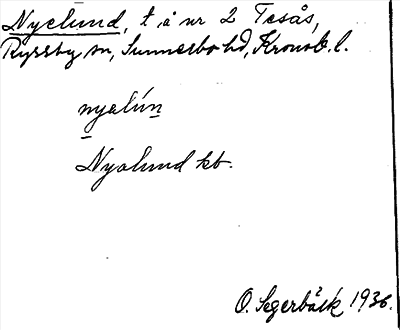 Nyelund, t. å nr 2 Tesås,
Ryssby sn, Sunnerbo hd, Kronob. l.
nyalún
Nyalund kt.
O. Segerbäck 1936.